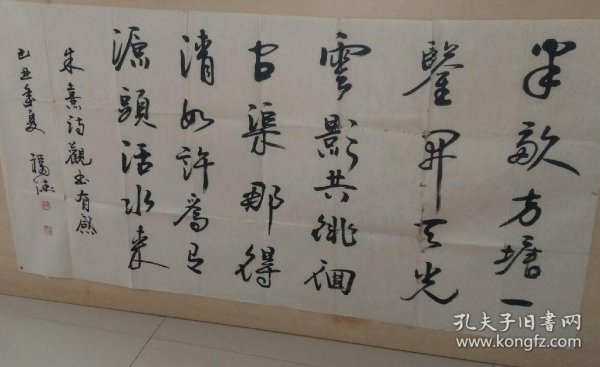 半畝方塘一
鑒開天光
雲影共徘徊
問渠那得
清如許為有
源頭活水來
朱熹詩觀書有感
己丑年夏
孔夫子旧书网
www.kongfz.com